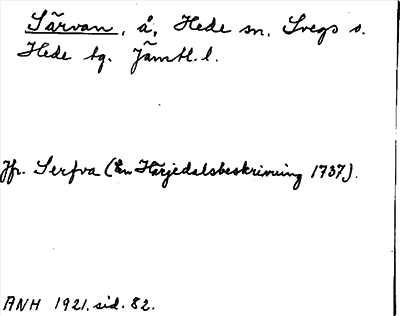 Särvan, å, Hede sn, Svegs o.
Hede tg. Jämtl. l.
Jfr. Serfva (En Härjedalsbeskrivning 1737).
ANH 1921, sid. 82.